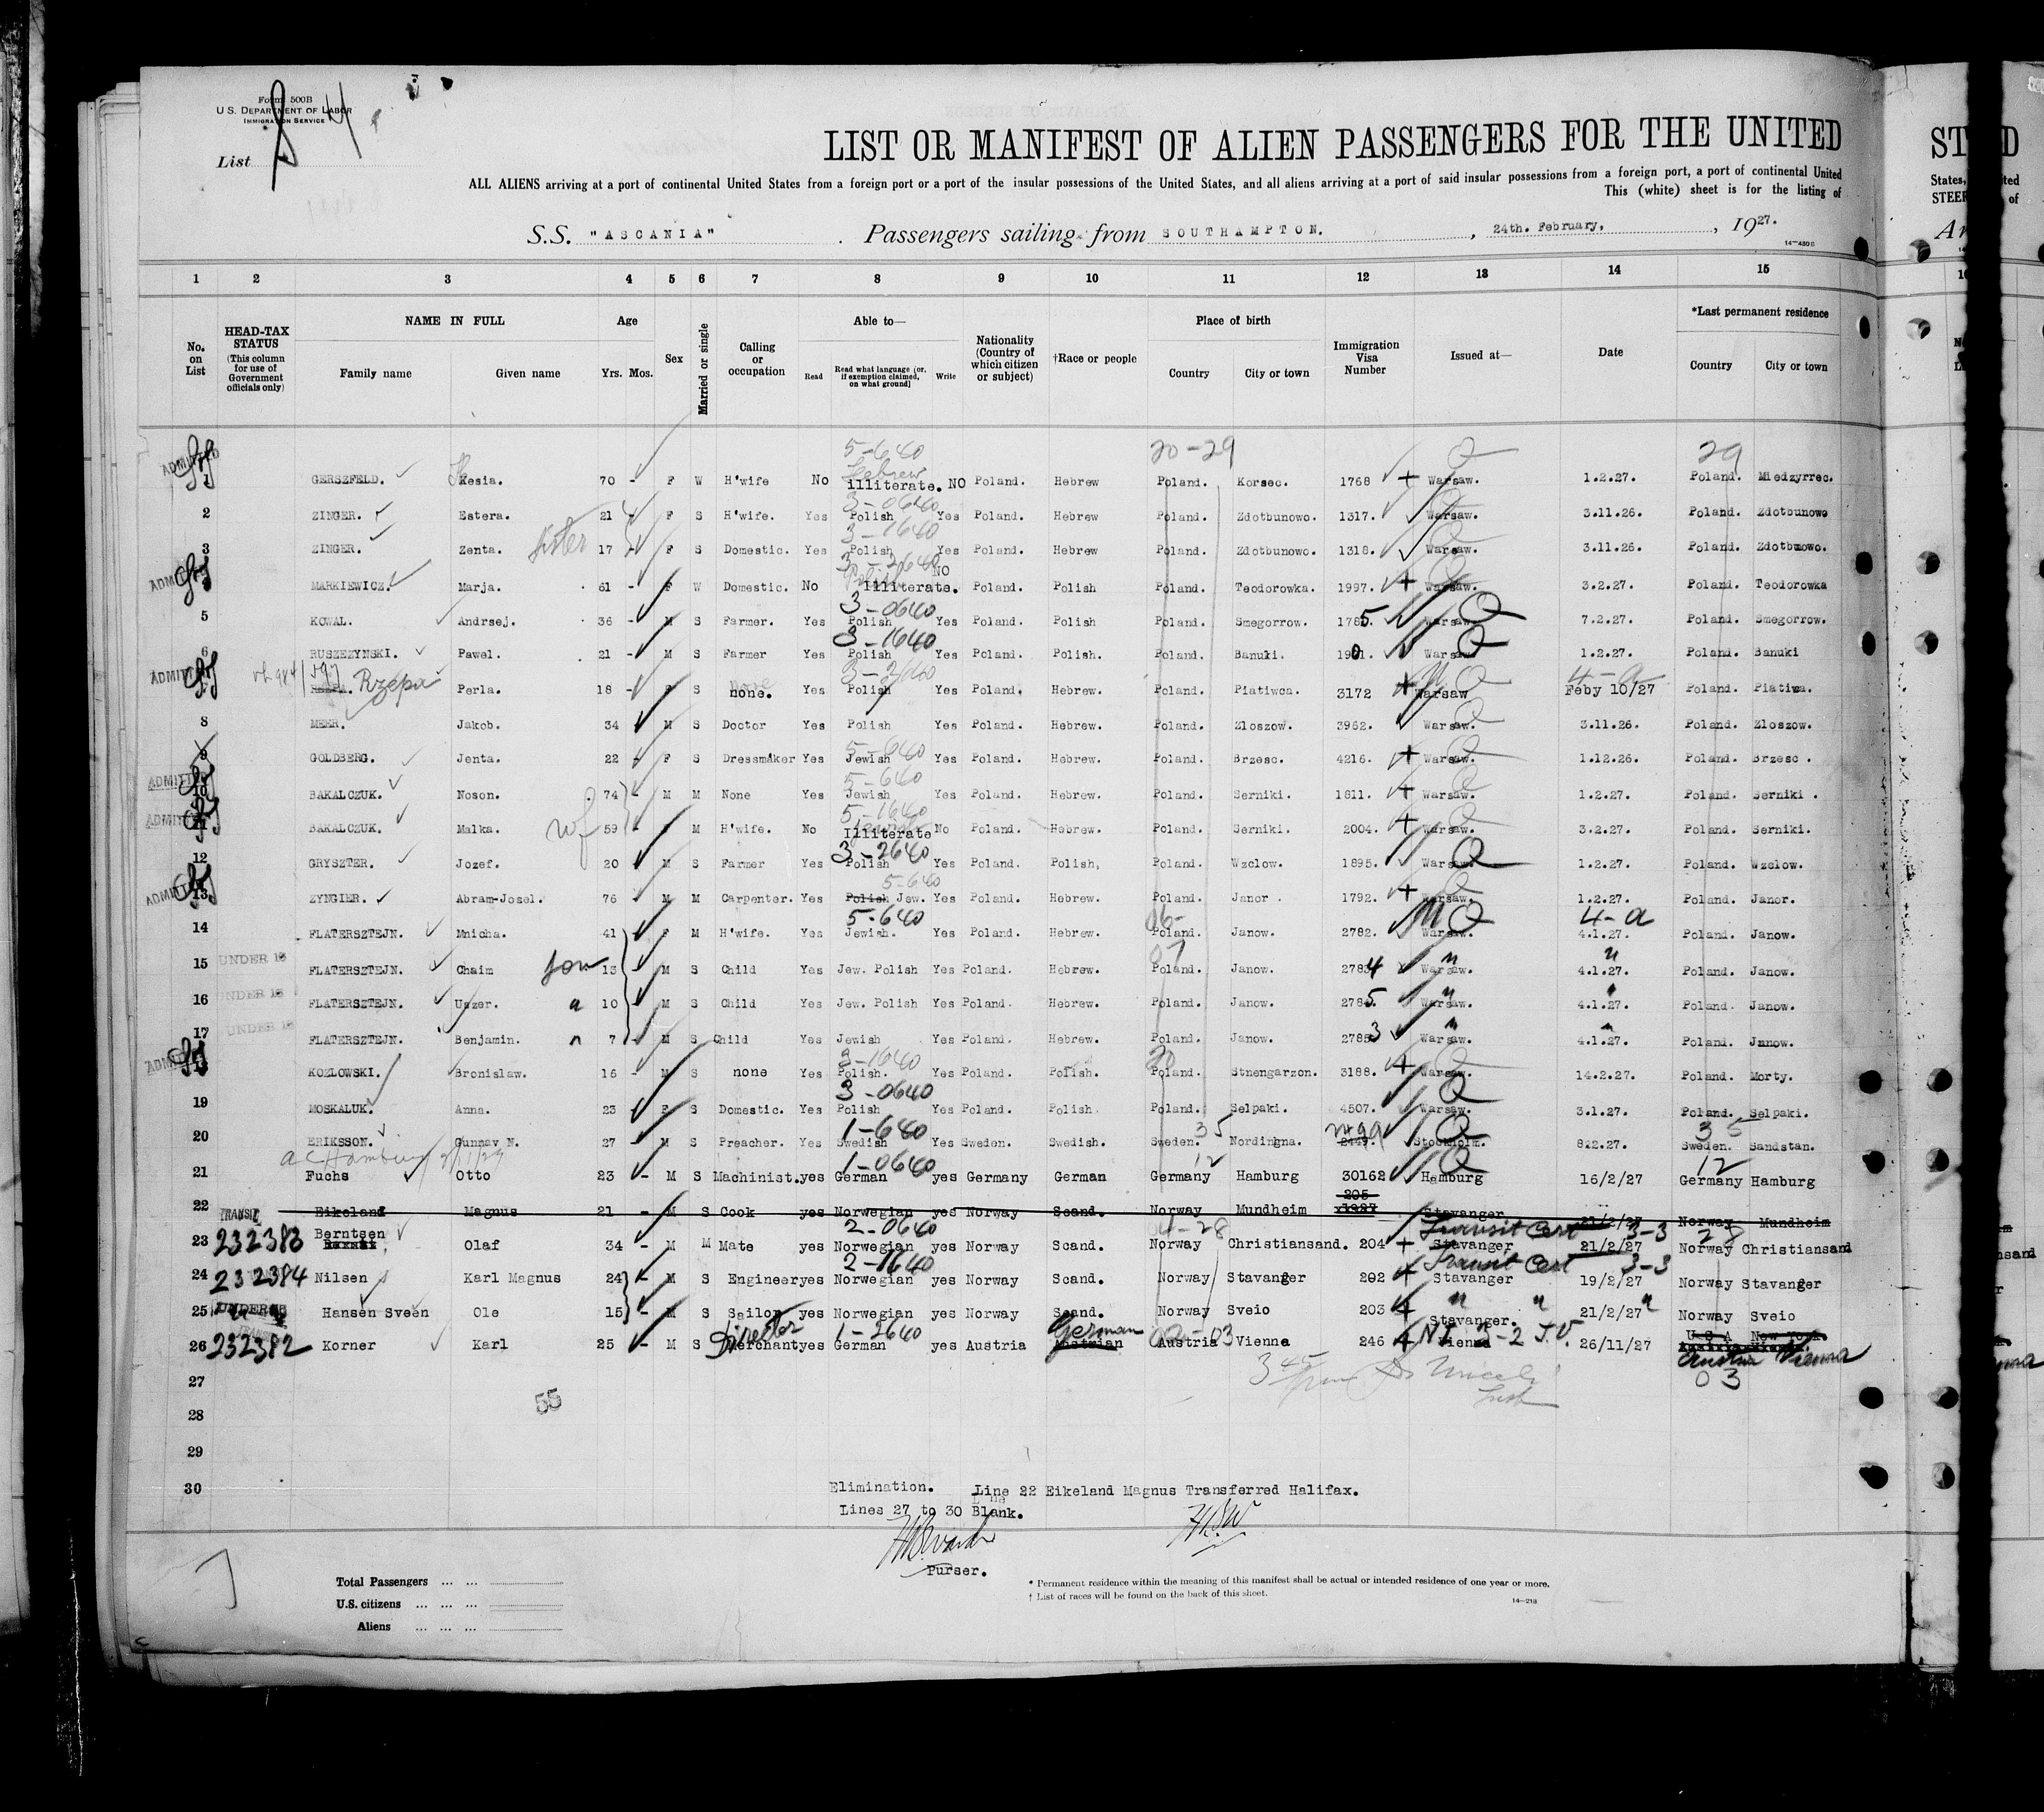 Form 500B
U. S. DEPARTMENT OF LABOR
IMMIGRATION SERVICE
List 4
LIST OR MANIFEST OF ALIEN PASSENGERS FOR THE UNITED
ALL ALIENS arriving at a port of continental United States from a foreign port or a port of the insular possessions of the United States, and all aliens arriving at a port of said insular possessions from a foreign port, a port of continental United
This (white) sheet is for the listing of
S.S. "ASCANIA" . Passengers sailing from SOUTHAMPTON. , 24th. February, , 1927.
14-430B
1 2 3 4 5 6 7 8 9 10 11 12 13 14 15
No. on List
HEAD-TAX STATUS (This column for use of Government officials only)
NAME IN FULL
Family name Given name
Age
Yrs. Mos.
Sex
Married or single
Calling or occupation
Able to—
Read Read what language (or, if exemption claimed, on what ground) Write
Nationality (Country of which citizen or subject)
†Race or people
Place of birth
Country City or town
Immigration Visa Number
Issued at—
Date
*Last permanent residence
Country City or town
5-640 20-29 Q 29
ADMITTED Hebrew
1 GERSZFELD. Kesia. 70 - F W H'wife No illiterate. NO Poland. Hebrew Poland. Korsec. 1768 + Warsaw. 1.2.27. Poland. Miedzyrrec.
3-0640
2 ZINGER. Estera. 21 - F S H'wife. Yes Polish Yes Poland. Hebrew Poland. Zdotbunowo. 1317. Warsaw. 3.11.26. Poland. Zdotbunowo
3-1640
3 ZINGER. Zenta. Sister 17 - F S Domestic. Yes Polish Yes Poland. Hebrew Poland. Zdotbunowo. 1318. Warsaw. 3.11.26. Poland. Zdotbunowo.
3-2640
ADMITTED Polish NO
MARKIEWICZ. Marja. 61 - F W Domestic. No Illiterate. Poland. Polish Poland. Teodorowka. 1997. + Warsaw. 3.2.27. Poland. Teodorowka
3-0640
5 KOWAL. Andrsej. 36 - M S Farmer. Yes Polish Yes Poland. Polish Poland. Smegorrow. 1785. Warsaw. Q 7.2.27. Poland. Smegorrow.
3-1640
6 RUSZEZYNSKI. Pawel. 21 - M S Farmer Yes Polish Yes Poland. Polish. Poland. Banuki. 1901. Warsaw. Q 1.2.27. Poland. Banuki
3-2640 4-a
ADMITTED Rzepa Perla. 18 - F S none. Yes Polish Yes Poland. Hebrew. Poland. Piatiwca. 3172 + Warsaw Feby 10/27 Poland. Piatiwa.
8 MEER. Jakob. 34 M S Doctor Yes Polish Yes Poland. Hebrew. Poland. Zloszow. 3962. Warsaw. 3.11.26. Poland. Zloszow.
5-640
9 GOLDBERG. Jenta. 22 F S Dressmaker Yes Jewish Yes Poland. Hebrew. Poland. Brzesc. 4216. + Warsaw. 1.12.26. Poland. Brzesc .
5-640
ADMITTED 10 BAKALCZUK. Noson. 74 - M M None Yes Jewish Yes Poland. Hebrew. Poland. Serniki. 1811. + Warsaw. 1.2.27. Poland. Serniki .
5-1640
ADMITTED 11 BAKALCZUK. Malka. wf 59 F M H'wife. No Illiterate No Poland. Hebrew. Poland. Serniki. 2004. + Warsaw. 3.2.27. Poland. Serniki.
3-2640
12 GRYSZTER. Jozef. 20 M S Farmer Yes Polish Yes Poland. Polish, Poland. Wzclow. 1895. Warsaw. Q 1.2.27. Poland. Wzclow.
5-640
ADMITTED 13 ZYNGIER. Abram-Josel. 76 - M M Carpenter. Yes Polish Jew. Yes Poland. Hebrew. Poland. Janor . 1792. + Warsaw. 1.2.27. Poland. Janor.
5-640 4-a
14 FLATERSZTEJN. Mnicha. 41 F M H'wife. Yes Jewish. Yes Poland. Hebrew. Poland. Janow. 2782. Warsaw. Q 4.1.27. Poland. Janow.
15 UNDER 16 FLATERSZTEJN. Chaim son 13 M S Child Yes Jew. Polish Yes Poland. Hebrew. Poland. Janow. 2784 Warsaw. 4.1.27. Poland. Janow.
16 UNDER 16 FLATERSZTEJN. Uszer. " 10 M S Child Yes Jew. Polish Yes Poland. Hebrew. Poland. Janow. 2785. Warsaw. 4.1.27. Poland. Janow.
17 UNDER 16 FLATERSZTEJN. Benjamin. " 7 - M S Child Yes Jewish Yes Poland. Hebrew. Poland. Janow. 2783 Warsaw. 4.1.27. Poland. Janow.
3-1640 20
ADMITTED KOZLOWSKI. Bronislaw. 16 - M S none Yes Polish. Yes Poland. Polish. Poland. Stnengarzon. 3188. + Warsaw. 14.2.27. Poland. Morty.
3-0640
19 MOSKALUK. Anna. 23 F S Domestic. Yes Polish Yes Poland. Polish. Poland. Selpaki. 4507. Warsaw. Q 3.1.27. Poland. Selpaki.
1-640 35 2499 35
20 ERIKSSON. Gunnav N. 27 M S Preacher. Yes Swedish Yes Sweden. Swedish. Sweden. Nordingna. 2449. Stockholm. Q 822.27. Sweden. Sandstan.
1-0640 12 12
21 Fuchs Otto 23 - M S Machinist. yes German yes Germany German Germany Hamburg 30162 Hamburg Q 16/2/27 Germany Hamburg
205
22 TRANSIT Eikeland Magnus 21 M S Cook yes Norwegian yes Norway Scand. Norway Mundheim Stavanger 21/2/27 Norway Mundheim
2-0640 28 Transit Cert 3-3 28
23 232383 Berntsen Olaf 34 - M M Mate yes Norwegian yes Norway Scand. Norway Christiansand. 204 + Stavanger 21/2/27 Norway Christiansand
2-1640 Transit Cert 3-3
24 232384 Nilsen Karl Magnus 24 - M S Engineer yes Norwegian yes Norway Scand. Norway Stavanger 202 Stavanger 19/2/27 Norway Stavanger
25 UNDER 16 Hansen Sveen Ole 15 - M S Sailor yes Norwegian yes Norway Scand. Norway Sveio 203 Stavanger. " " 21/2/27 " Norway Sveio
Director 1-2640 German 03 N.Y. 3-2 T.V. U S A New York.
26 232382 Korner Karl 25 - M S Merchant yes German yes Austria Austrian Austria Vienna 246 Vienna 26/11/27 Austria Vienna
03
27
28 55
29
30
Elimination. Line 22 Eikeland Magnus Transferred Halifax.
Lines 27 to 30 Blank.
Purser.
Total Passengers ... ...
U.S. citizens ... ... ...
Aliens ... ... ...
* Permanent residence within the meaning of this manifest shall be actual or intended residence of one year or more.
† List of races will be found on the back of this sheet.
14-213